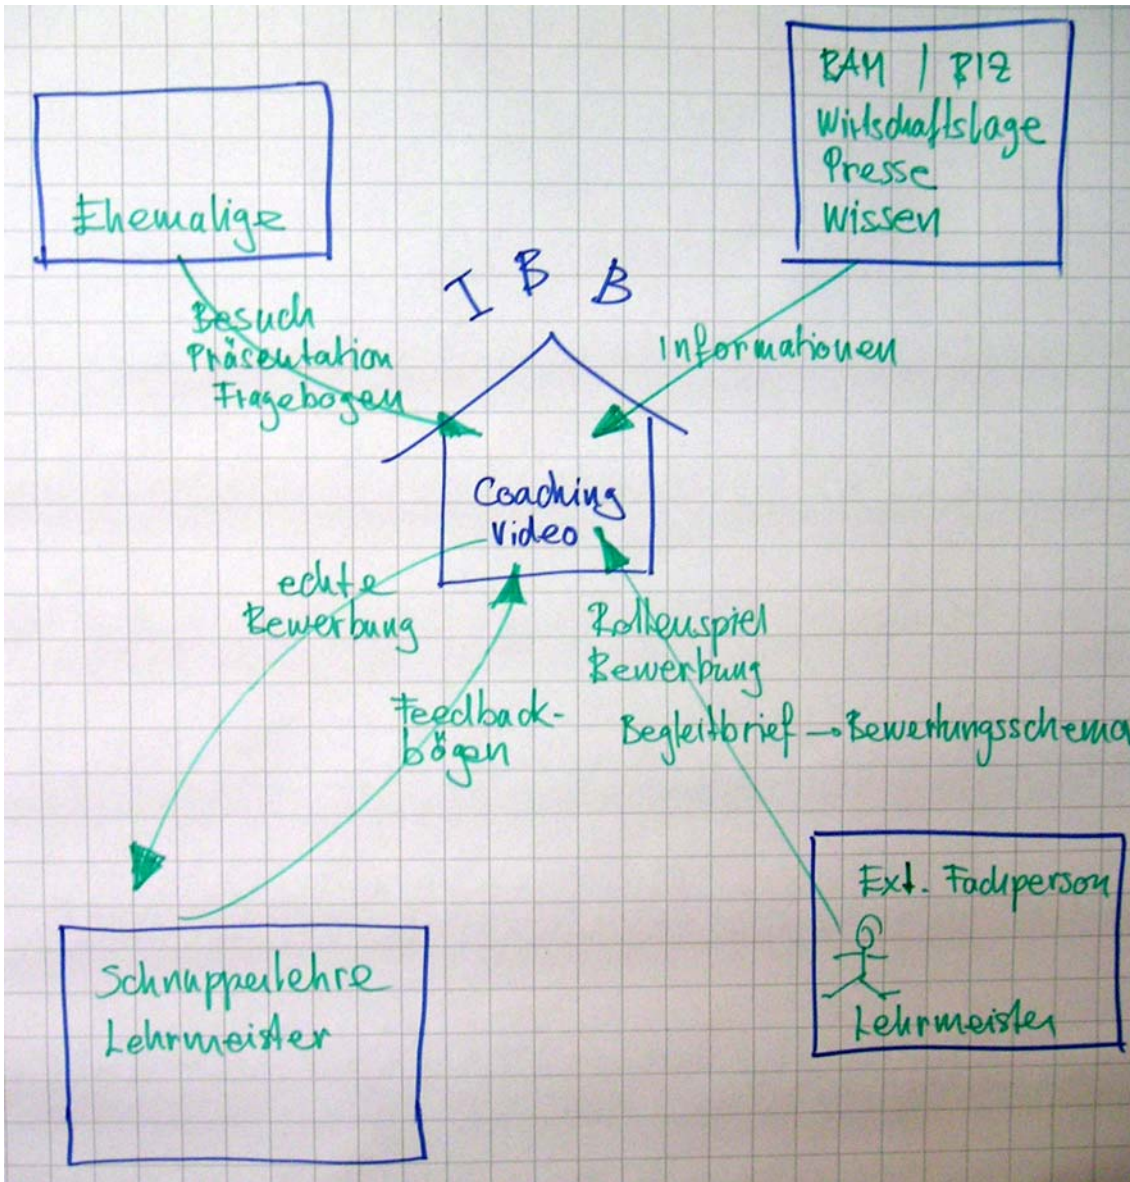 BAM / BIZ
Wirtschaftslage
Presse
Wissen
Ehemalige
I B B
Besuch
Präsentation
Fragebogen
Informationen
Coaching
Video
echte
Bewerbung
Rollenspiel
Bewerbung
Begleitbrief → Bewertungsschema
Feedback-
bögen
Ext. Fachperson
Lehrmeister
Schnupperlehre
Lehrmeister